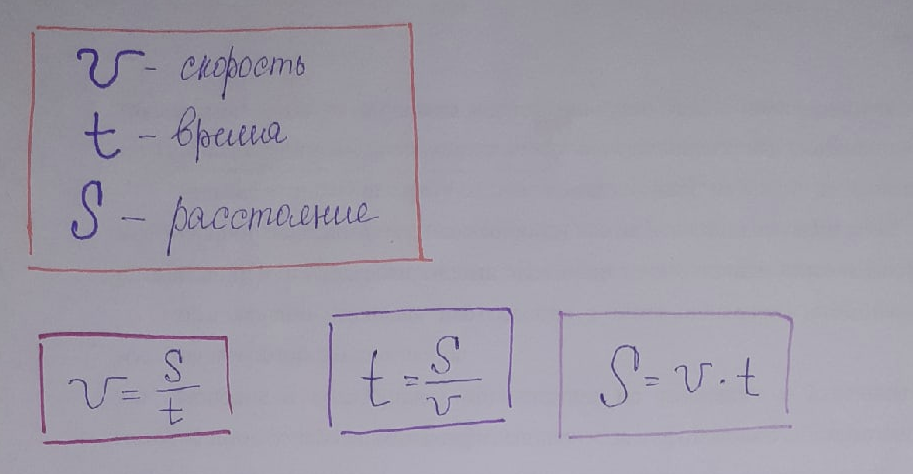 v - скорость
t - время
S - расстояние
v = S/t
t = S/v
S = v · t